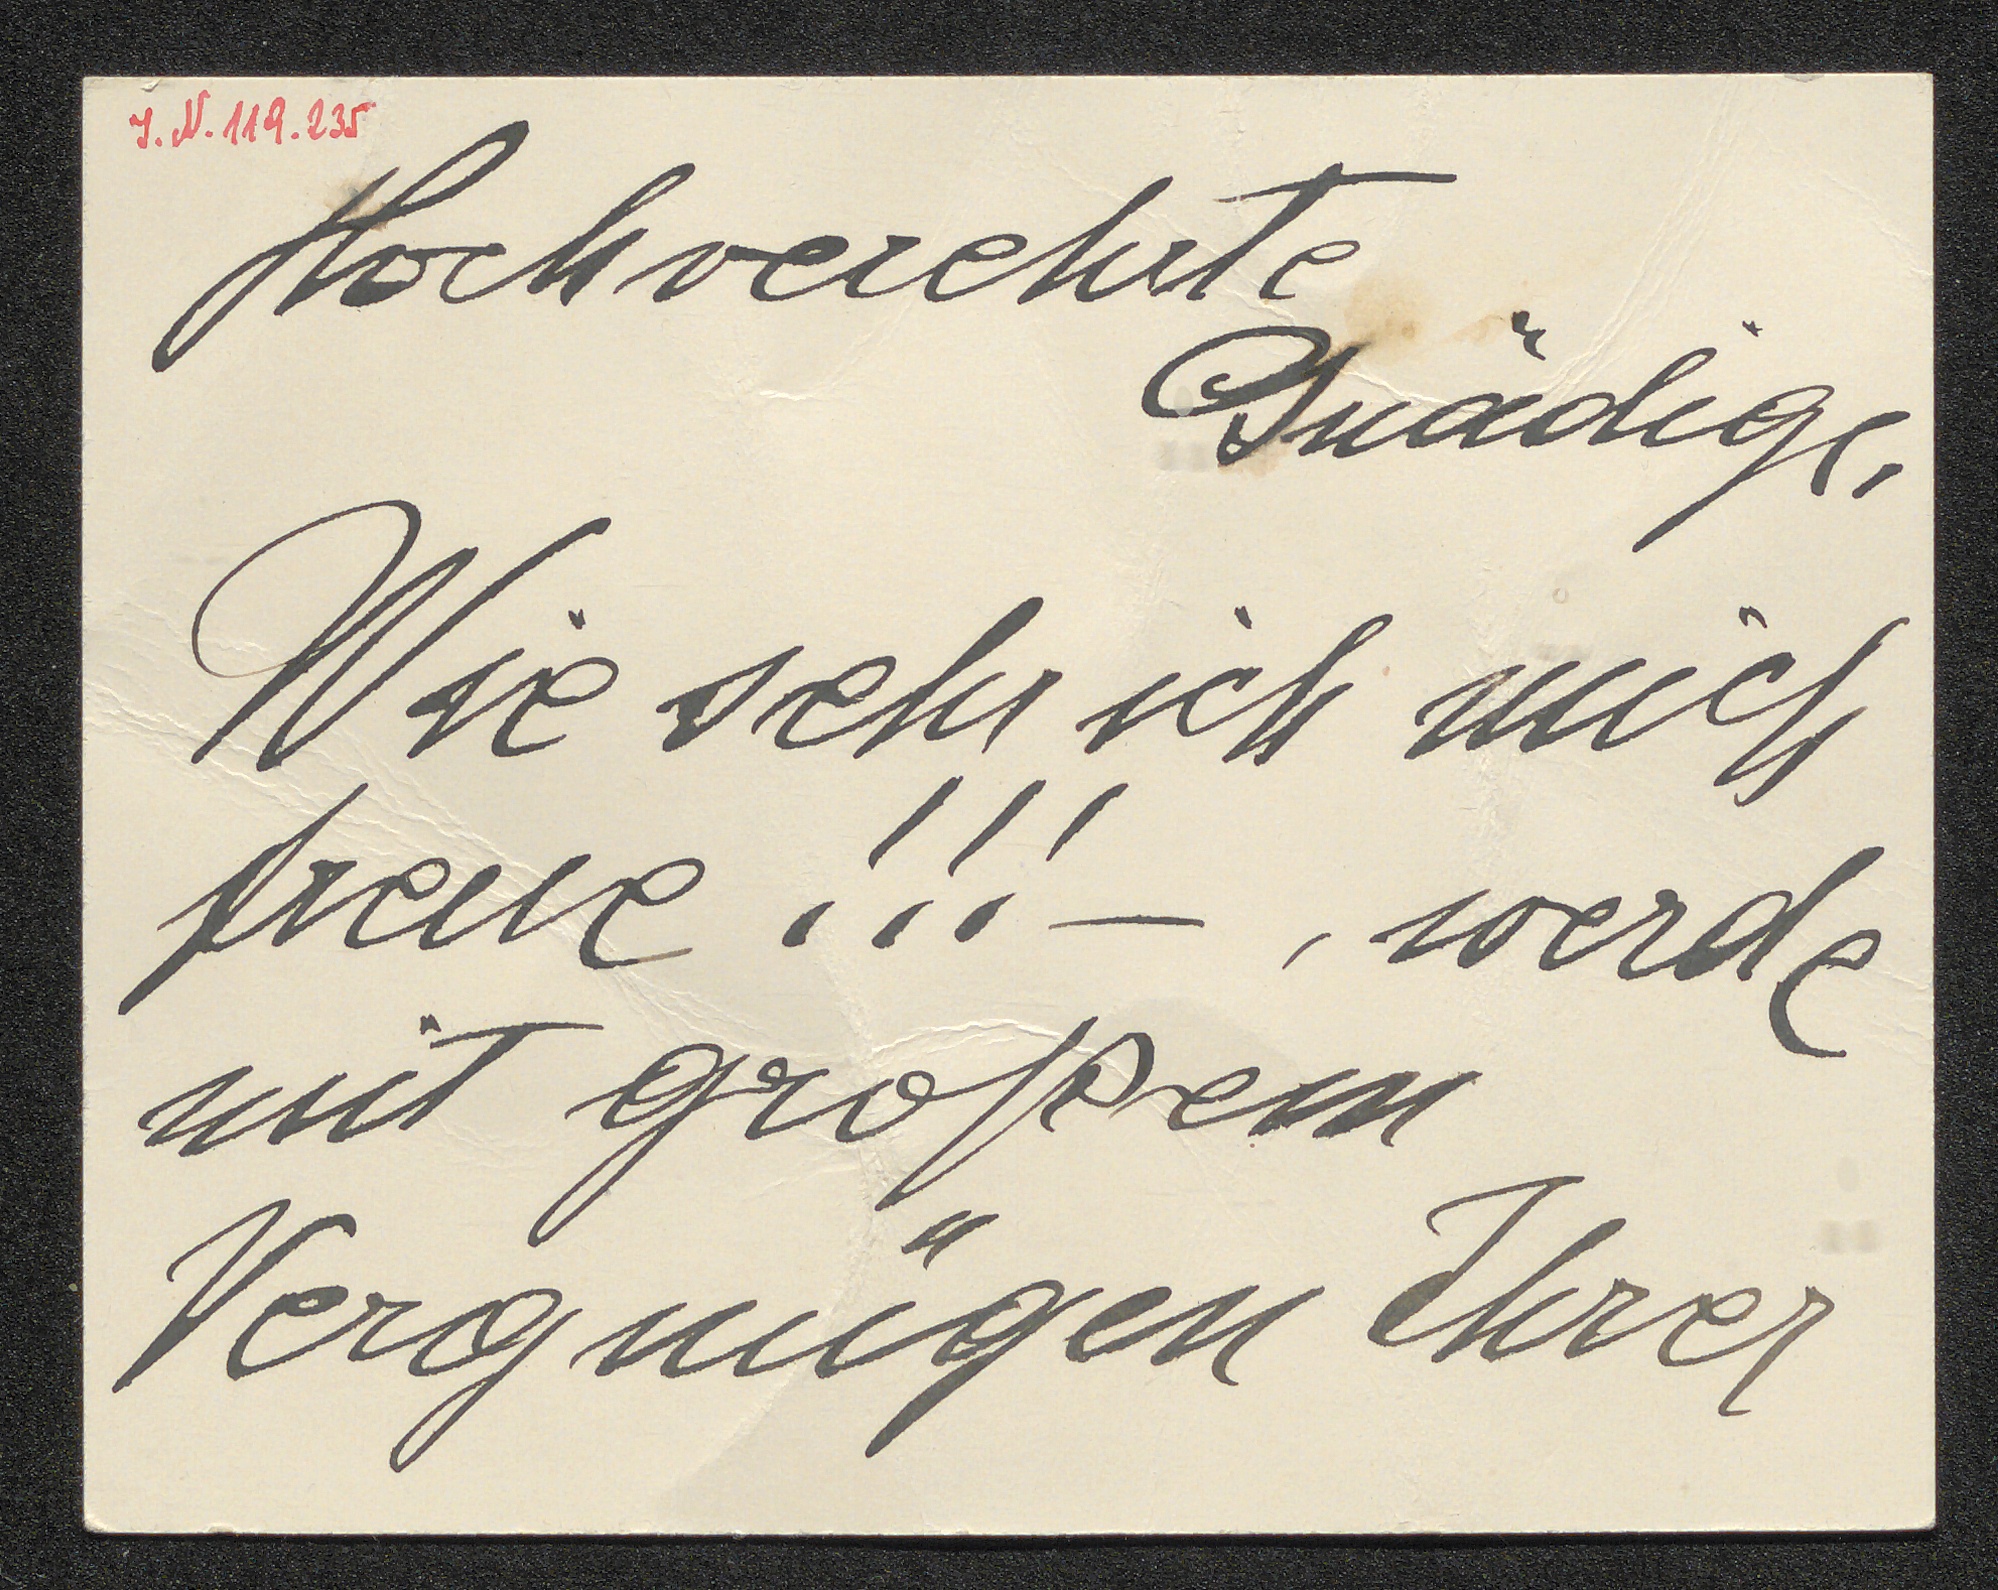 J. N. 119.235
Hochverehrte
Gnädige,
Wie sehr ich mich
freue !!! — , werde
mit großem
Vergnügen Ihrer